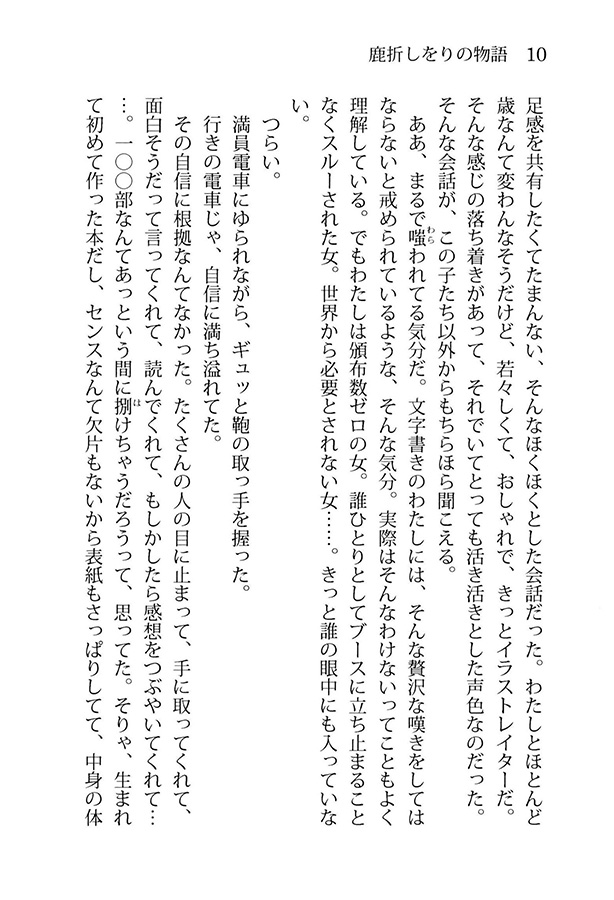 鹿折しをりの物語　10
足感を共有したくてたまんない、そんなほくほくとした会話だった。わたしとほとんど
歳なんて変わんなそうだけど、若々しくて、おしゃれで、きっとイラストレイターだ。
そんな感じの落ち着きがあって、それでいてとっても活き活きとした声色なのだった。
そんな会話が、この子たち以外からもちらほら聞こえる。
　ああ、まるで嗤われてる気分だ。文字書きのわたしには、そんな贅沢な嘆きをしては
わら
ならないと戒められているような、そんな気分。実際はそんなわけないってこともよく
理解している。でもわたしは頒布数ゼロの女。誰ひとりとしてブースに立ち止まること
なくスルーされた女。世界から必要とされない女……。きっと誰の眼中にも入っていな
い。
　つらい。
　満員電車にゆられながら、ギュッと鞄の取っ手を握った。
　行きの電車じゃ、自信に満ち溢れてた。
　その自信に根拠なんてなかった。たくさんの人の目に止まって、手に取ってくれて、
面白そうだって言ってくれて、読んでくれて、もしかしたら感想をつぶやいてくれて…
…。一〇〇部なんてあっという間に捌けちゃうだろうって、思ってた。そりゃ、生まれ
は
て初めて作った本だし、センスなんて欠片もないから表紙もさっぱりしてて、中身の体